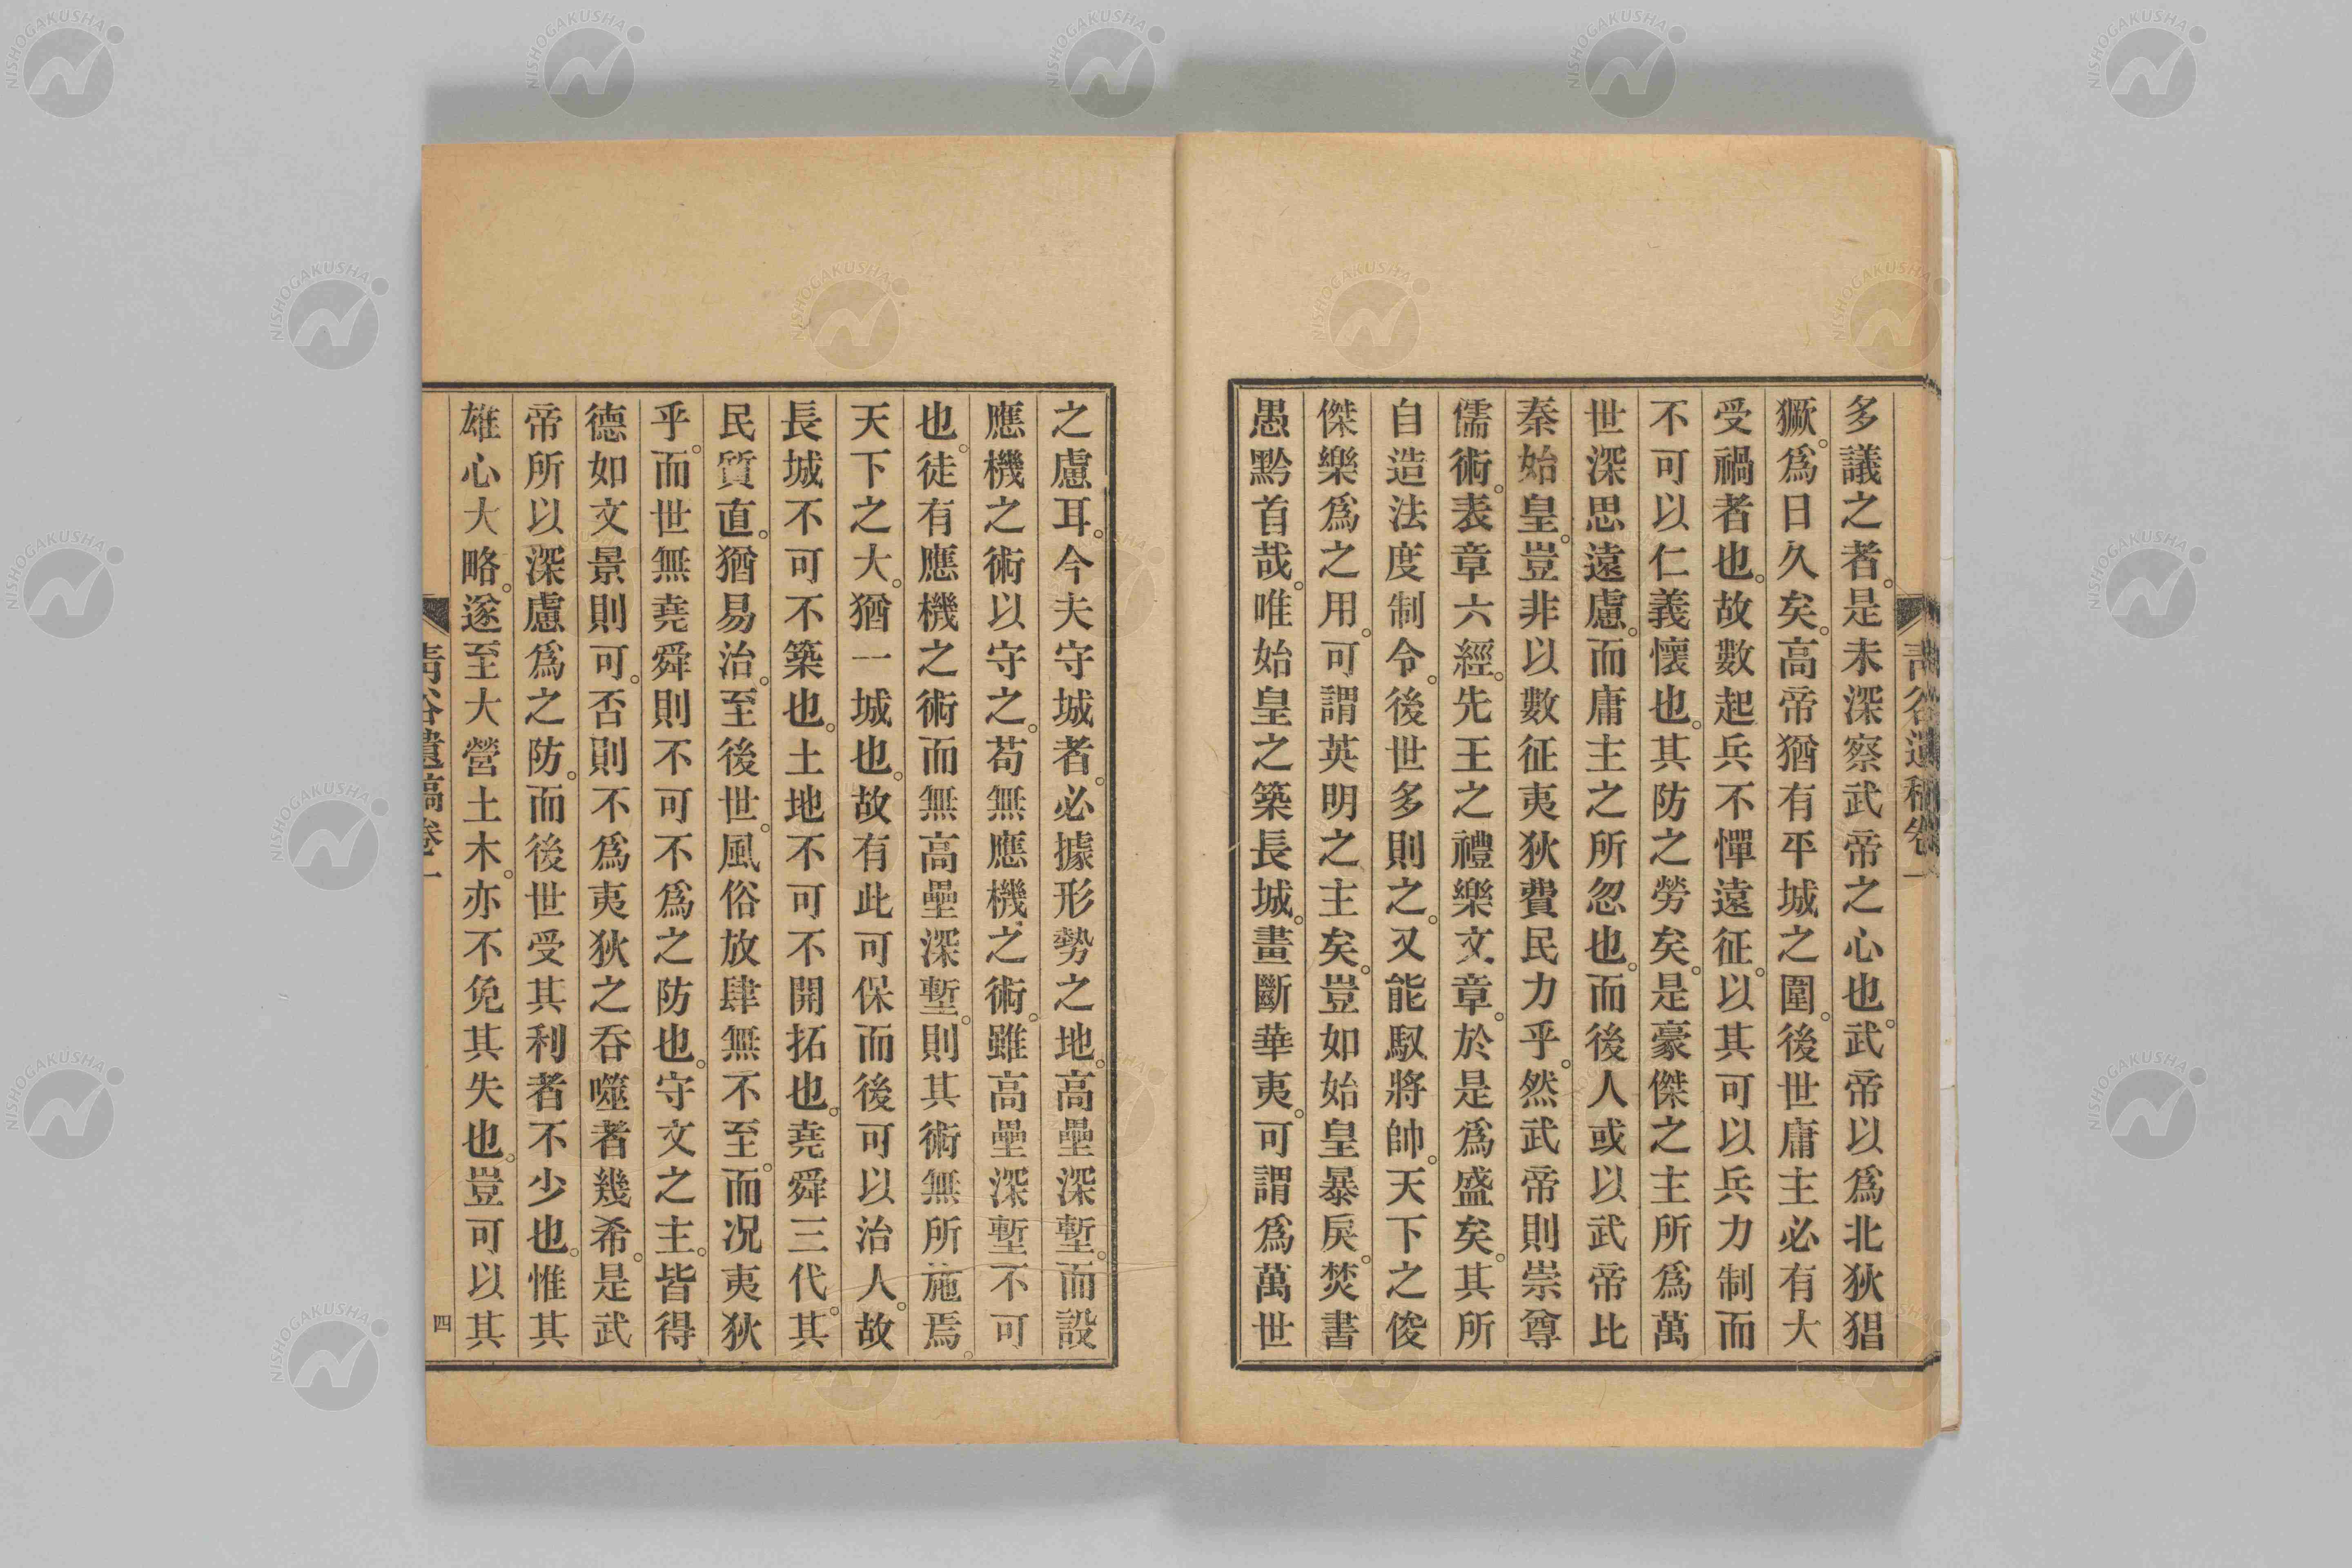 多議之者。是未深察武帝之心也。武帝以爲北狄猖
獗。爲日久矣。高帝猶有平城之圍。後世庸主必有大
受禍者也。故數起兵不憚遠征。以其可以兵力制而
不可以仁義懷也。其防之勞矣。是豪傑之主所爲萬
世深思遠慮。而庸主之所忽也。而後人或以武帝比
秦始皇。豈非以數征夷狄費民力乎。然武帝則崇尊
儒術。表章六經。先王之禮樂文章。於是爲盛矣。其所
自造法度制令。後世多則之。又能馭將帥。天下之俊
傑樂爲之用。可謂英明之主矣。豈如始皇暴戾。焚書
愚黔首哉。唯始皇之築長城。畫斷華夷。可謂爲萬世
之慮耳。今夫守城者。必據形勢之地。高壘深塹。而設
應機之術以守之。苟無應機之術。雖高壘深塹不可
也。徒有應機之術而無高壘深塹。則其術無所施焉。
天下之大。猶一城也。故有此可保而後可以治人。故
長城不可不築也。土地不可不開拓也。堯舜三代。其
民質直。猶易治。至後世。風俗放肆無不至。而況夷狄
乎。而世無堯舜則不可不爲之防也。守文之主。皆得
德如文景則可。否則不爲夷狄之吞噬者幾希。是武
帝所以深慮爲之防。而後世受其利者不少也。惟其
雄心大略。遂至大營土木。亦不免其失也。豈可以其
靑谷遺稿卷一
四
NISHOGAKUSHA